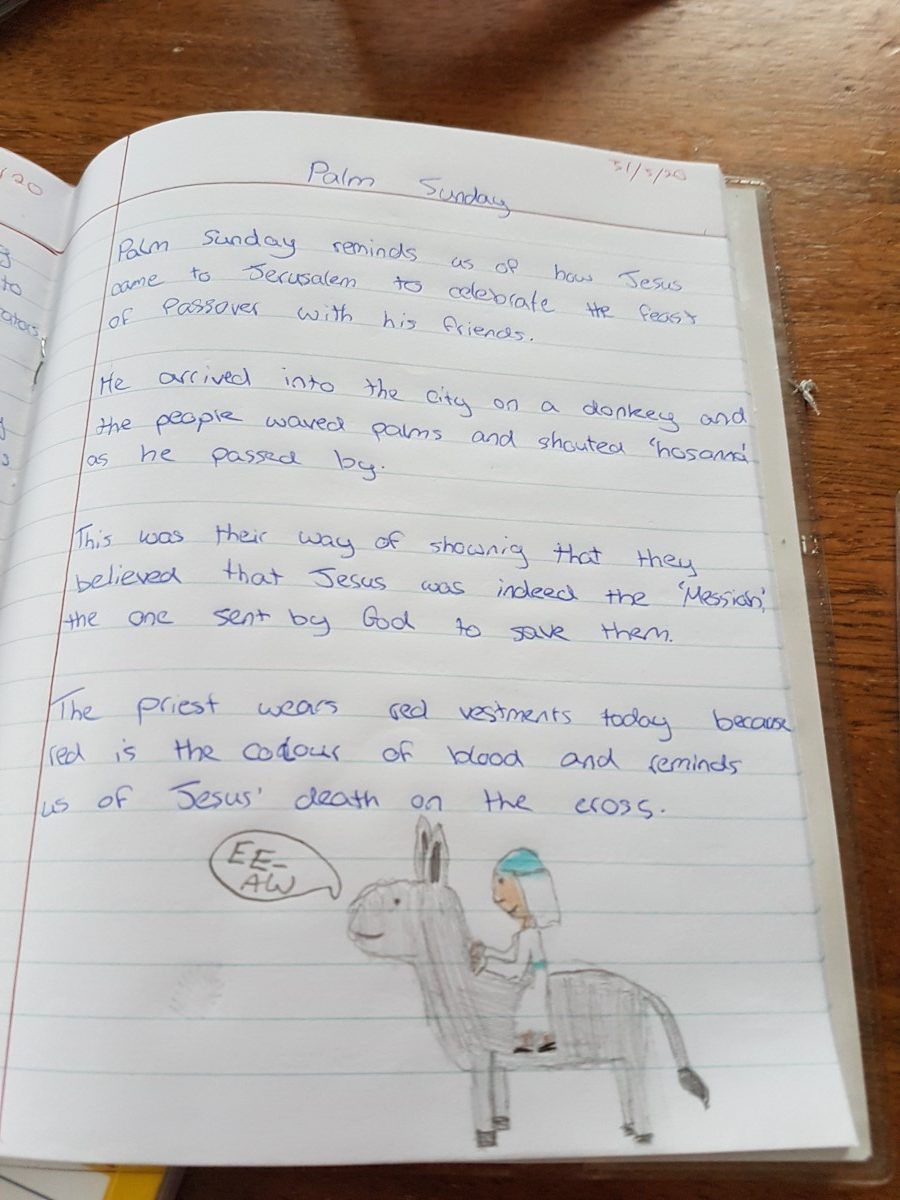 Palm Sunday
31/3/20
Palm Sunday reminds us of how Jesus
came to Jerusalem to celebrate the feast
of Passover with his friends.
He arrived into the city on a donkey and
the people waved palms and shouted 'hosanna'
as he passed by.
This was their way of shownig that they
believed that Jesus was indeed the 'Messiah',
the one sent by God to save them.
The priest wears red vestments today because
red is the colour of blood and reminds
us of Jesus' death on the cross.
EE-
AW
/20
to